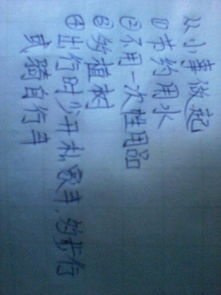 从小事做起
①节约用水
②不用一次性用品
③多植树
④出行时少开私家车,多步行
或骑自行车